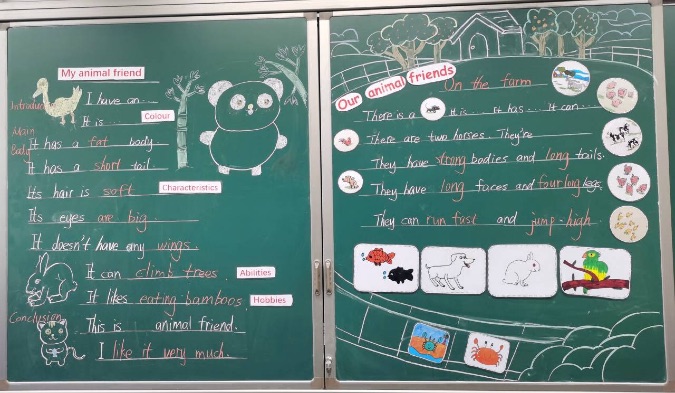 My animal friend
Introduction
I have an...
It is ... Colour
Main
Body
It has a fat body
It has a short tail.
Its hair is soft Characteristics
Its eyes are big.
It doesn't have any wings.
It can climb trees. Abilities
It likes eating bamboos Hobbies
Conclusion
This is animal friend.
I like it very much.
Our animal friends
On the farm
There is a It is ... It has ... It can ...
There are two horses. They're
They have strong bodies and long tails.
They have long faces and four long legs.
They can run fast and jump high.